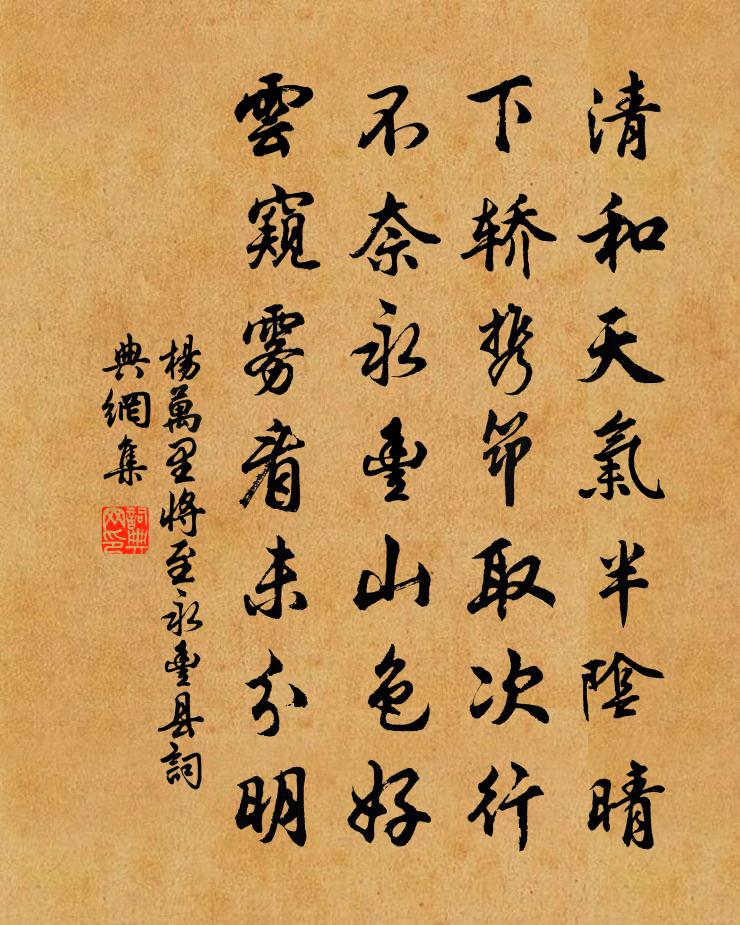 清和天氣半陰晴
下轿携筇取次行
不奈永豐山色好
雲窺雾看未分明
楊萬里将至永豐县詞
典網集
詞典網印